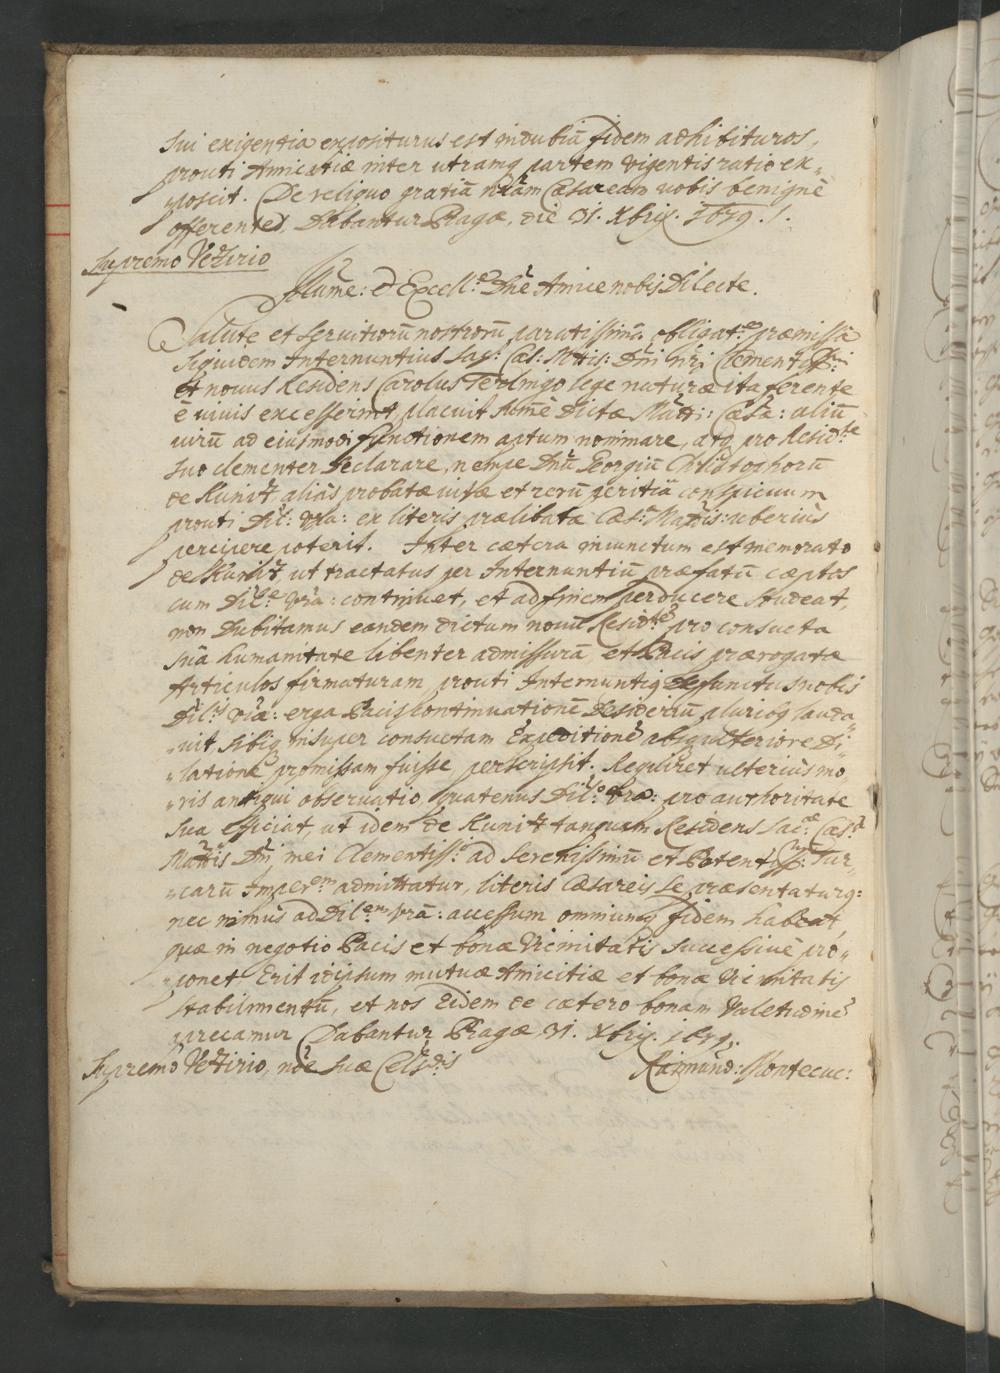 sui exigentia expositurus est indubiā fidem adhibituros,
prouti Amicitiæ inter utramq partem vigentis ratio ex-,
-poscit. De reliquo gratiā nr̄am Cæsaream vobis benignè
offerentes. Dabantur Pragæ, die 31. Xbris. 1679. /.
Supremo Vezirio
Illūme: et Excell.e Dn̄e Amice nobis Dilecte.
Salute et servitiorū nostrorū paratissimâ obligat.e præmissâ
Siquidem Internuntius Sac: Cæs: Mttis: Dn̄i nr̄i Clementiss.mi
et novus Residens Carolus Terlingo lege naturæ ita ferente
è vivis excesserint, placuit Dictæ Matti: Cæsa: aliū
virū ad eiusmodi functionem aptum nominare, atq pro Resid.te
suo clementer declarare, nempe Dnū Georgiū Christophorū
de Kunitz aliàs probatæ vitæ et rerū peritiâ conspicuum
prouti Dil: vr̄a: ex literis prælibatæ Cæs: Mattis: uberiùs
percipere poterit. Inter cætera iniunctum est memorato
de Kunitz, ut tractatus per Internuntiū præfatū cæptos
cum Dil.e vr̄a: continuet, et ad finem perducere studeat,
non dubitamus eandem dictum novū Resid.te pro consueta
suâ humanitate libenter admissurā, et Pacis prærogatæ
Articulos firmaturam prouti Internuntiq defunctus nobis
Dil.s vr̄æ: erga Pacis continuationē desideriū pluriby lauda-
-vit, sibiq insuper consuetam Expeditionē absq ulteriore Di-
-latione promissam fuisse perscripsit. Requiret ulterius mo-
-ris antiqui observatio, quatenus Dil.o vr̄a: pro authoritate
sua efficiat, ut idem de Kunitz tanquam Residens Sac.æ Cæs.æ
Mattis Dn̄i mei Clementiss.i ad Serenissimū et Potentiss.m Tur-
-carū Imper.em admittatur, literis Cæsareis se præsentaturq:
nec minus ad Dil.em vr̄ā: accessum omniumq fidem habeat,
quæ in negotio Pacis et bonæ Vicinitatis successivè pro-
-ponet. Erit idipsum mutuæ Amicitiæ et bonæ Vicinitatis
stabilimentū, et nos Eidem de cætero bonam Valetudinē
precamur. Dabantur Pragæ 31. Xbris. 1679.
Supremo Vezirio, noē suæ Cels.dis Raimund: Montecuc: